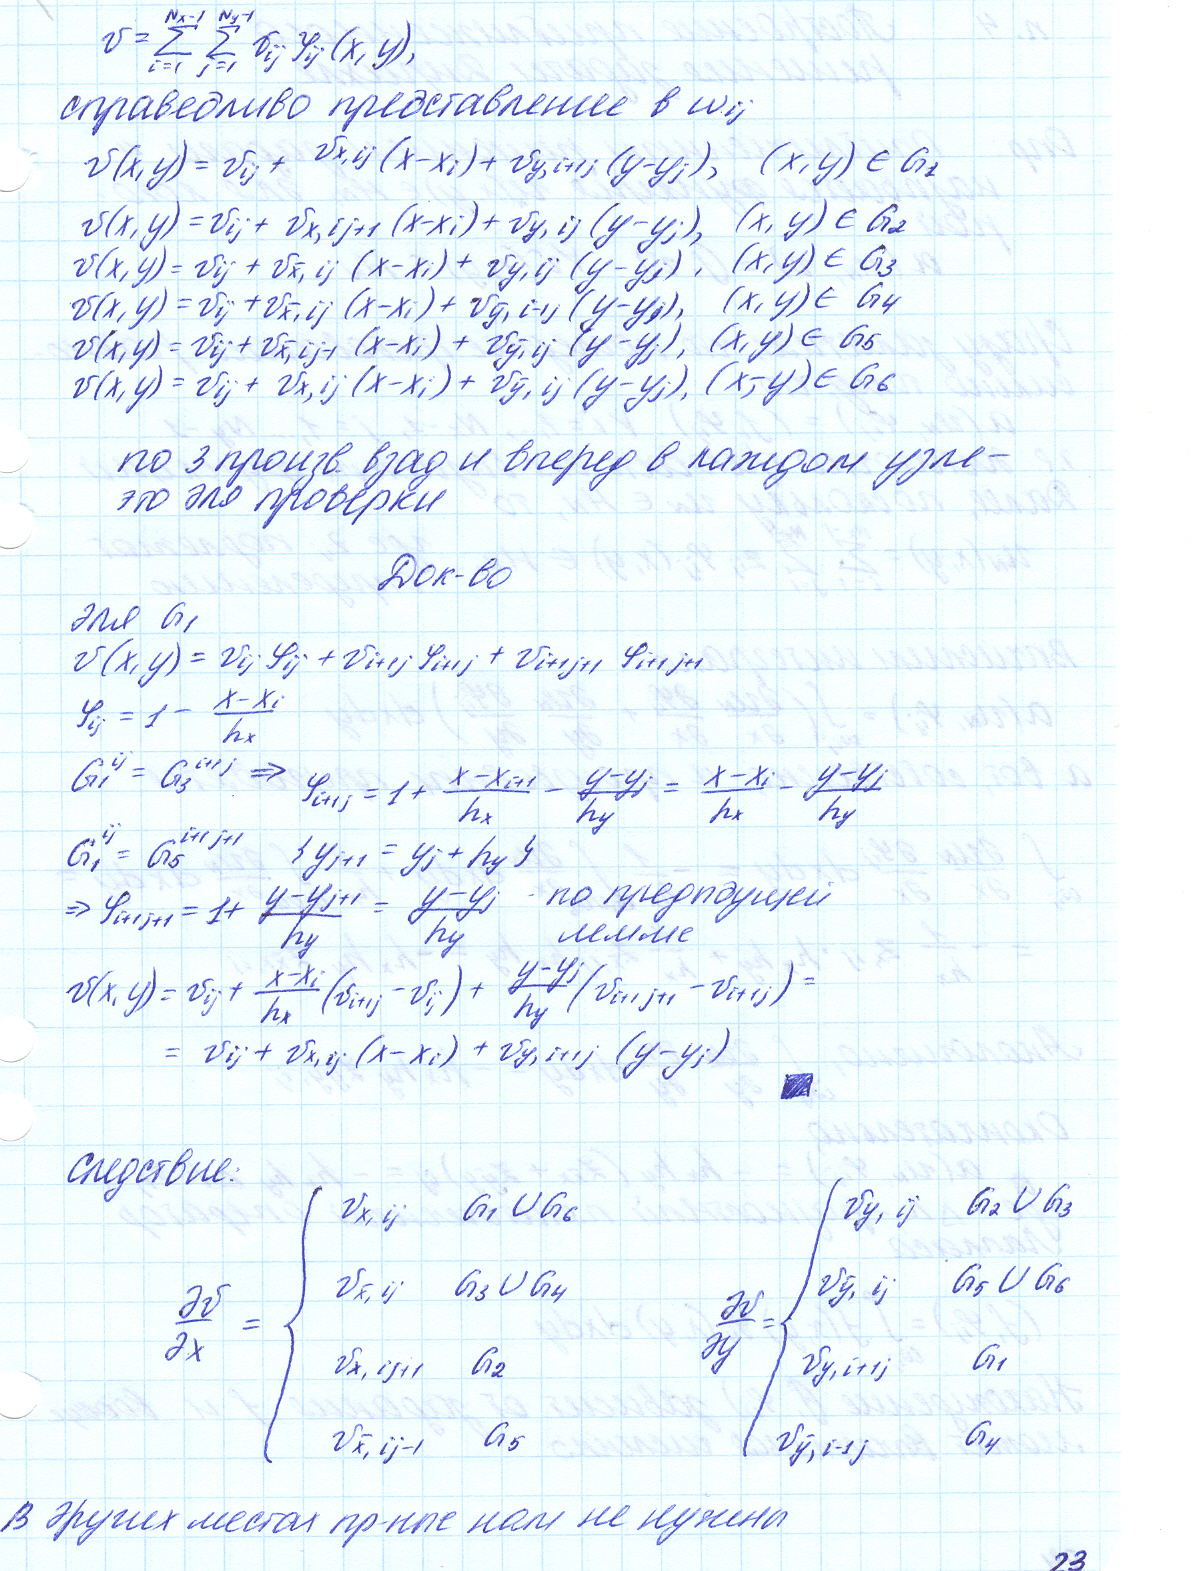 v = \sum_{i=1}^{N_x-1} \sum_{j=1}^{N_y-1} v_{ij} φ_{ij}(x, y),
справедливо представление в ω_{ij}
v(x, y) = v_{ij} + v_{x, ij} (x-x_i) + v_{y, i+1j} (y-y_j), (x, y) ∈ G_1
v(x, y) = v_{ij} + v_{x, ij+1} (x-x_i) + v_{y, ij} (y-y_j), (x, y) ∈ G_2
v(x, y) = v_{ij} + v_{\bar{x}, ij} (x-x_i) + v_{y, ij} (y-y_j), (x, y) ∈ G_3
v(x, y) = v_{ij} + v_{\bar{x}, ij} (x-x_i) + v_{\bar{y}, i-1j} (y-y_j), (x, y) ∈ G_4
v(x, y) = v_{ij} + v_{\bar{x}, ij-1} (x-x_i) + v_{\bar{y}, ij} (y-y_j), (x, y) ∈ G_5
v(x, y) = v_{ij} + v_{x, ij} (x-x_i) + v_{\bar{y}, ij} (y-y_j), (x, y) ∈ G_6
по 3 произв. взад и вперед в каждом узле –
это для проверки
Док-во
для G_1
v(x, y) = v_{ij} φ_{ij} + v_{i+1j} φ_{i+1j} + v_{i+1j+1} φ_{i+1j+1}
φ_{ij} = 1 - \frac{x-x_i}{h_x}
G_1^{ij} = G_3^{i+1j} ⇒ φ_{i+1j} = 1 + \frac{x-x_{i+1}}{h_x} - \frac{y-y_j}{h_y} = \frac{x-x_i}{h_x} - \frac{y-y_j}{h_y}
G_1^{ij} = G_5^{i+1j+1} {y_{j+1} = y_j + h_y}
⇒ φ_{i+1j+1} = 1 + \frac{y-y_{j+1}}{h_y} = \frac{y-y_j}{h_y} - по предыдущей
лемме
v(x, y) = v_{ij} + \frac{x-x_i}{h_x} (v_{i+1j} - v_{ij}) + \frac{y-y_j}{h_y} (v_{i+1j+1} - v_{i+1j}) =
= v_{ij} + v_{x, ij} (x-x_i) + v_{y, i+1j} (y-y_j)
Следствие:
\frac{∂v}{∂x} = {
v_{x, ij} G_1 ∪ G_6
v_{\bar{x}, ij} G_3 ∪ G_4
v_{x, ij+1} G_2
v_{\bar{x}, ij-1} G_5
\frac{∂v}{∂y} = {
v_{y, ij} G_2 ∪ G_3
v_{\bar{y}, ij} G_5 ∪ G_6
v_{y, i+1j} G_1
v_{\bar{y}, i-1j} G_4
В других местах пр-ные нам не нужны
23